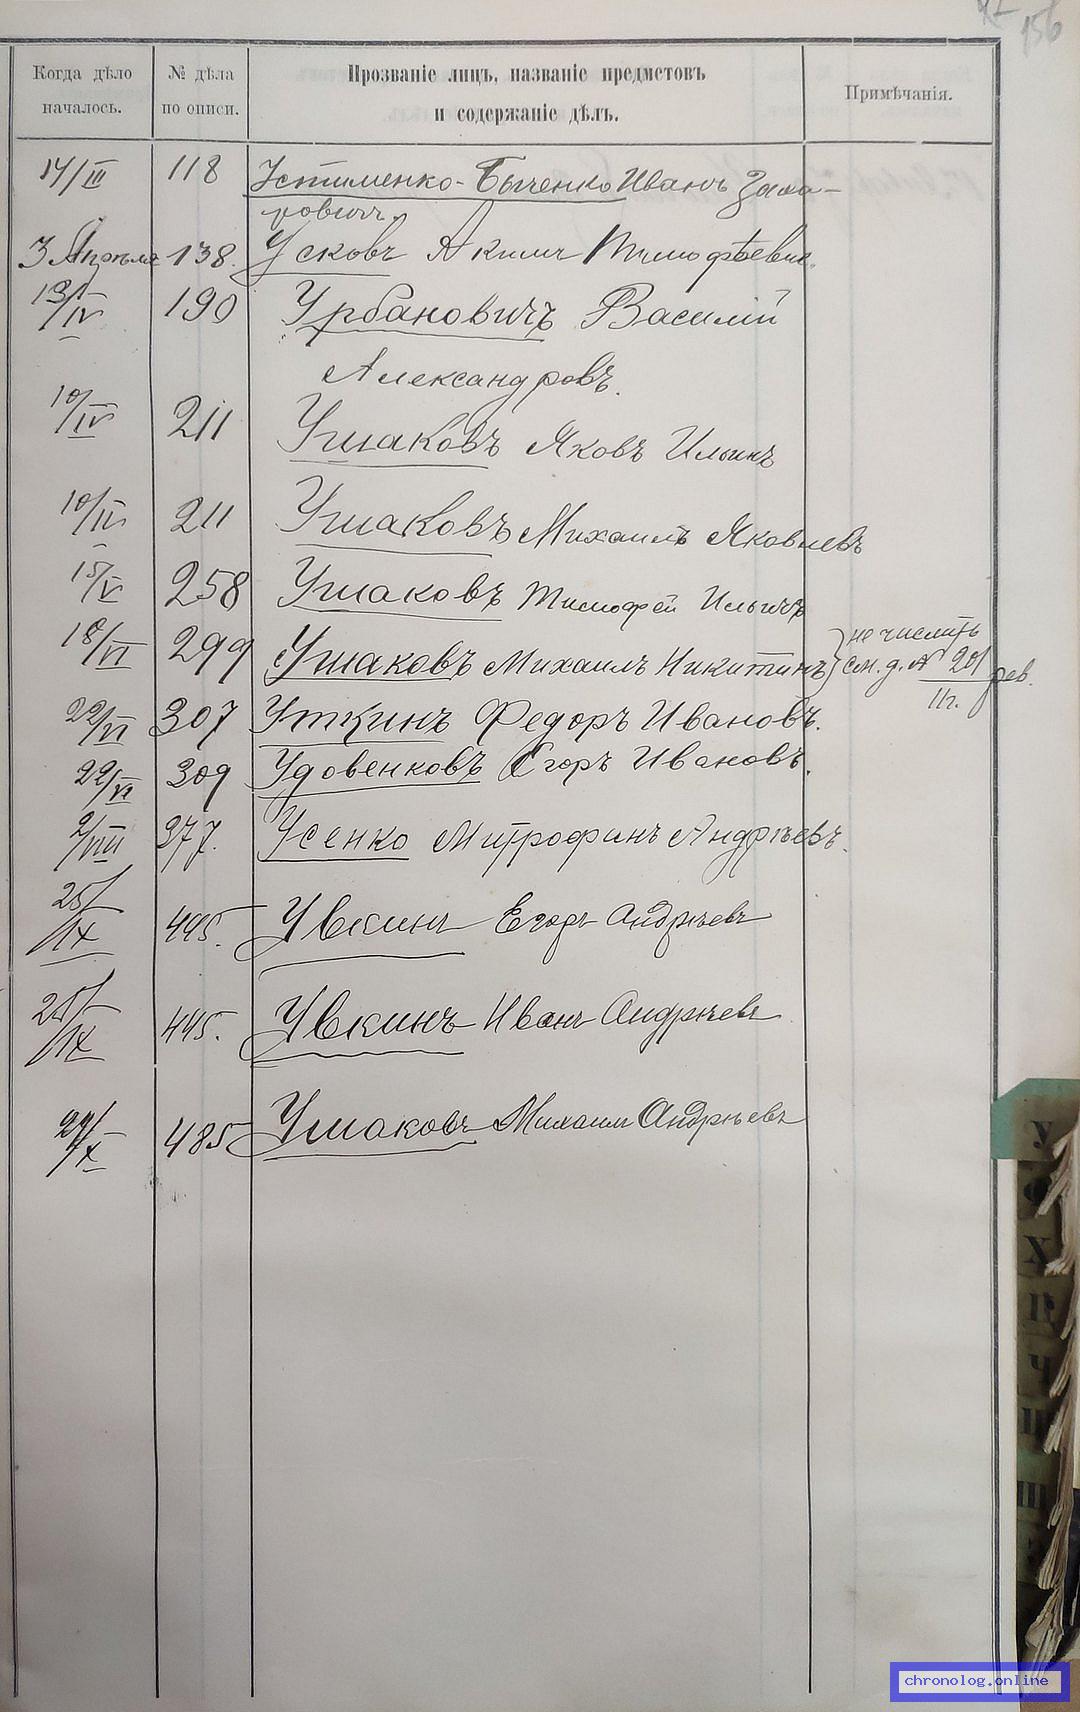 156
Когда дѣло началось.
№ дѣла по описи.
Прозваніе лицъ, названіе предметовъ и содержаніе дѣлъ.
Примѣчанія.
14/III 118 Устименко-Быченко Иванъ Заха-
ровичъ.
3 Апрѣля 138. Усковъ Акимъ Тимофѣевич.
13/IV 190 Урбановичъ Василій
Александровъ.
10/IV 211 Ушаковъ Яковъ Ильинъ
10/IV 211 Ушаковъ Михаилъ Яковлевъ
15/V 258 Ушаковъ Тимофей Ильичъ
18/VI 299 Ушаковъ Михаилъ Никитинъ } не числить
см. д. № 201 рев.
11г.
22/VI 307 Уткинъ Федоръ Ивановъ.
22/VI 309 Удовенковъ Егоръ Ивановъ.
2/VIII 377. Усенко Митрофанъ Андрѣевъ.
25/IX 445. Увкинъ Егоръ Андрѣевъ
25/IX 445. Увкинъ Иванъ Андрѣевъ
24/X 485 Ушаковъ Михаил Андрѣевъ
У
Ф
Х
Ц
Ч
Ш
chronolog.online